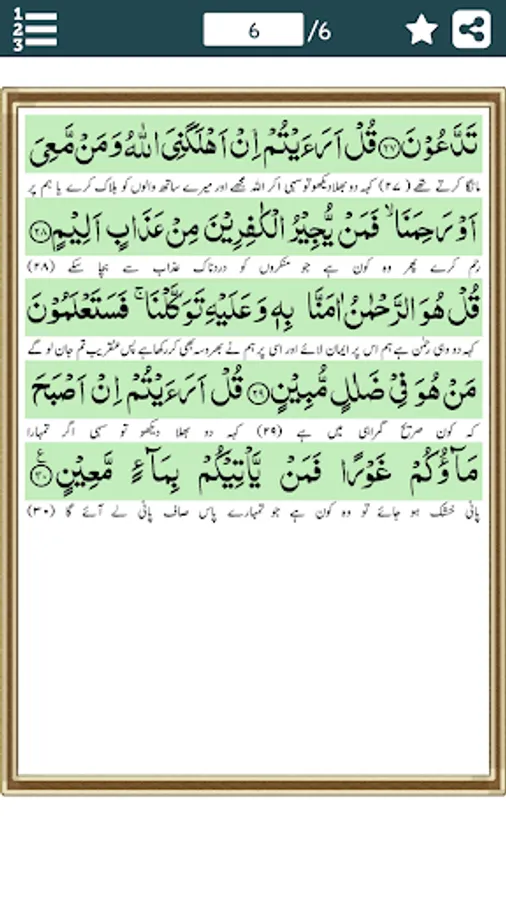 1
2
3
6 /6
تَدَّعُوْنَ ﴿۲۷﴾ قُلْ اَرَءَيْتُمْ اِنْ اَهْلَكَنِیَ اللّٰهُ وَمَنْ مَّعِیَ
مانگا کرتے تھے (۲۷) کہہ دو بھلا دیکھو تو سہی اگر اللہ مجھے اور میرے ساتھ والوں کو ہلاک کرے یا ہم پر
اَوْ رَحِمَنَا ۙ فَمَنْ يُّجِيْرُ الْكٰفِرِيْنَ مِنْ عَذَابٍ اَلِيْمٍ ﴿۲۸﴾
رحم کرے پھر وہ کون ہے جو منکروں کو دردناک عذاب سے بچا سکے (۲۸)
قُلْ هُوَ الرَّحْمٰنُ اٰمَنَّا بِهٖ وَعَلَيْهِ تَوَكَّلْنَا ۚ فَسَتَعْلَمُوْنَ
کہہ دو وہی رحمٰن ہے ہم اس پر ایمان لائے اور اسی پر ہم نے بھروسہ بھی کر رکھا ہے پس عنقریب تم جان لو گے
مَنْ هُوَ فِیْ ضَلٰلٍ مُّبِيْنٍ ﴿۲۹﴾ قُلْ اَرَءَيْتُمْ اِنْ اَصْبَحَ
کہ کون صریح گمراہی میں ہے (۲۹) کہہ دو بھلا دیکھو تو سہی اگر تمہارا
مَآؤُكُمْ غَوْرًا فَمَنْ يَّاْتِيْكُمْ بِمَآءٍ مَّعِيْنٍ ﴿۳۰﴾ ع
پانی خشک ہو جائے تو وہ کون ہے جو تمہارے پاس صاف پانی لے آئے گا (۳۰)